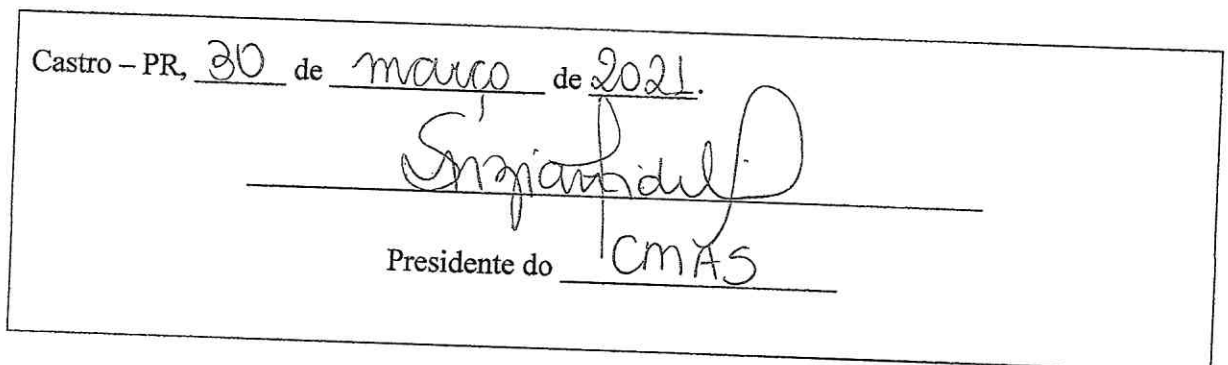 Castro – PR, 30 de março de 2021.
Presidente do CMAS